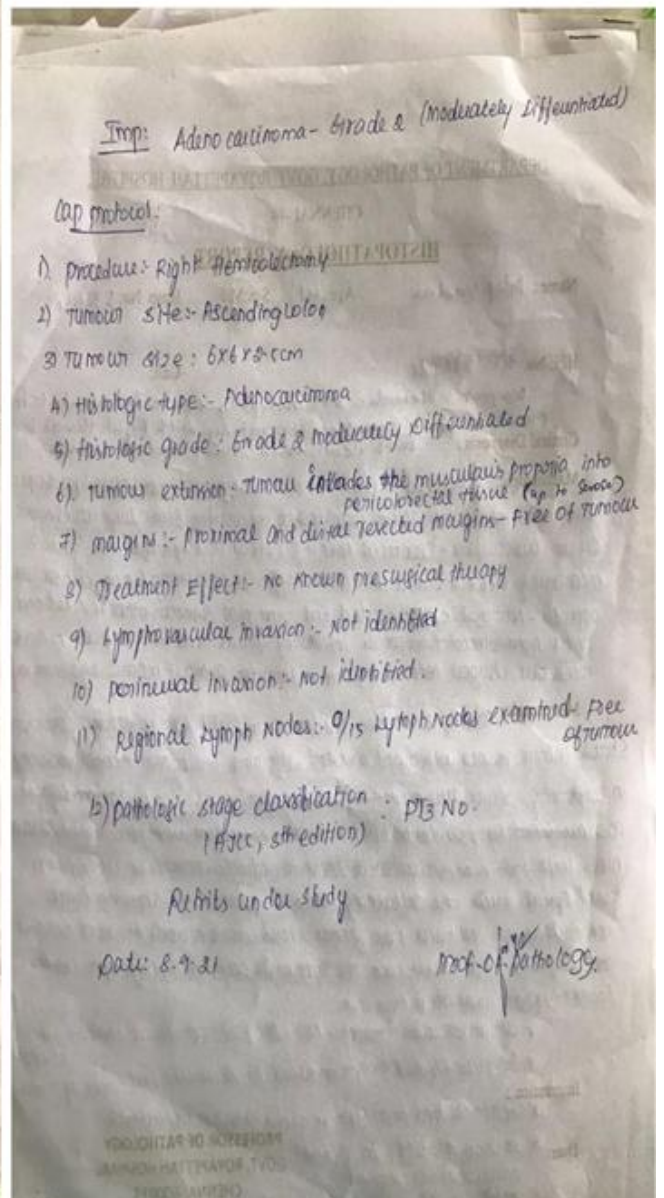 Imp: Adenocarcinoma - Grade 2 (Moderately Differentiated)
Cap protocol:
1) Procedure:- Right Hemicolectomy
2) Tumour Site:- Ascending colon
3) Tumour Size: 6x6x2.5cm
4) Histologic type:- Adenocarcinoma
5) Histologic grade: Grade 2 moderately Differentiated
6) Tumour extension- Tumour invades the muscularis propria into
pericolorectal tissue (up to Serosa)
7) margins:- Proximal and distal resected margins- Free of Tumour
8) Treatment Effect:- No known presurgical therapy
9) Lymphovascular invasion:- Not identified
10) Perineural invasion:- Not identified.
11) Regional Lymph Nodes:- 0/15 Lymph Nodes examined- Free
of Tumour
12) pathologic stage classification : PT3 N0.
(AJCC, 8th edition)
under study
Date: 8.9.21
Prof. of Pathology.
HISTOPATHOLOGY REPORT
PROFESSOR OF PATHOLOGY
GOVT. ROYAPETTAH HOSPITAL